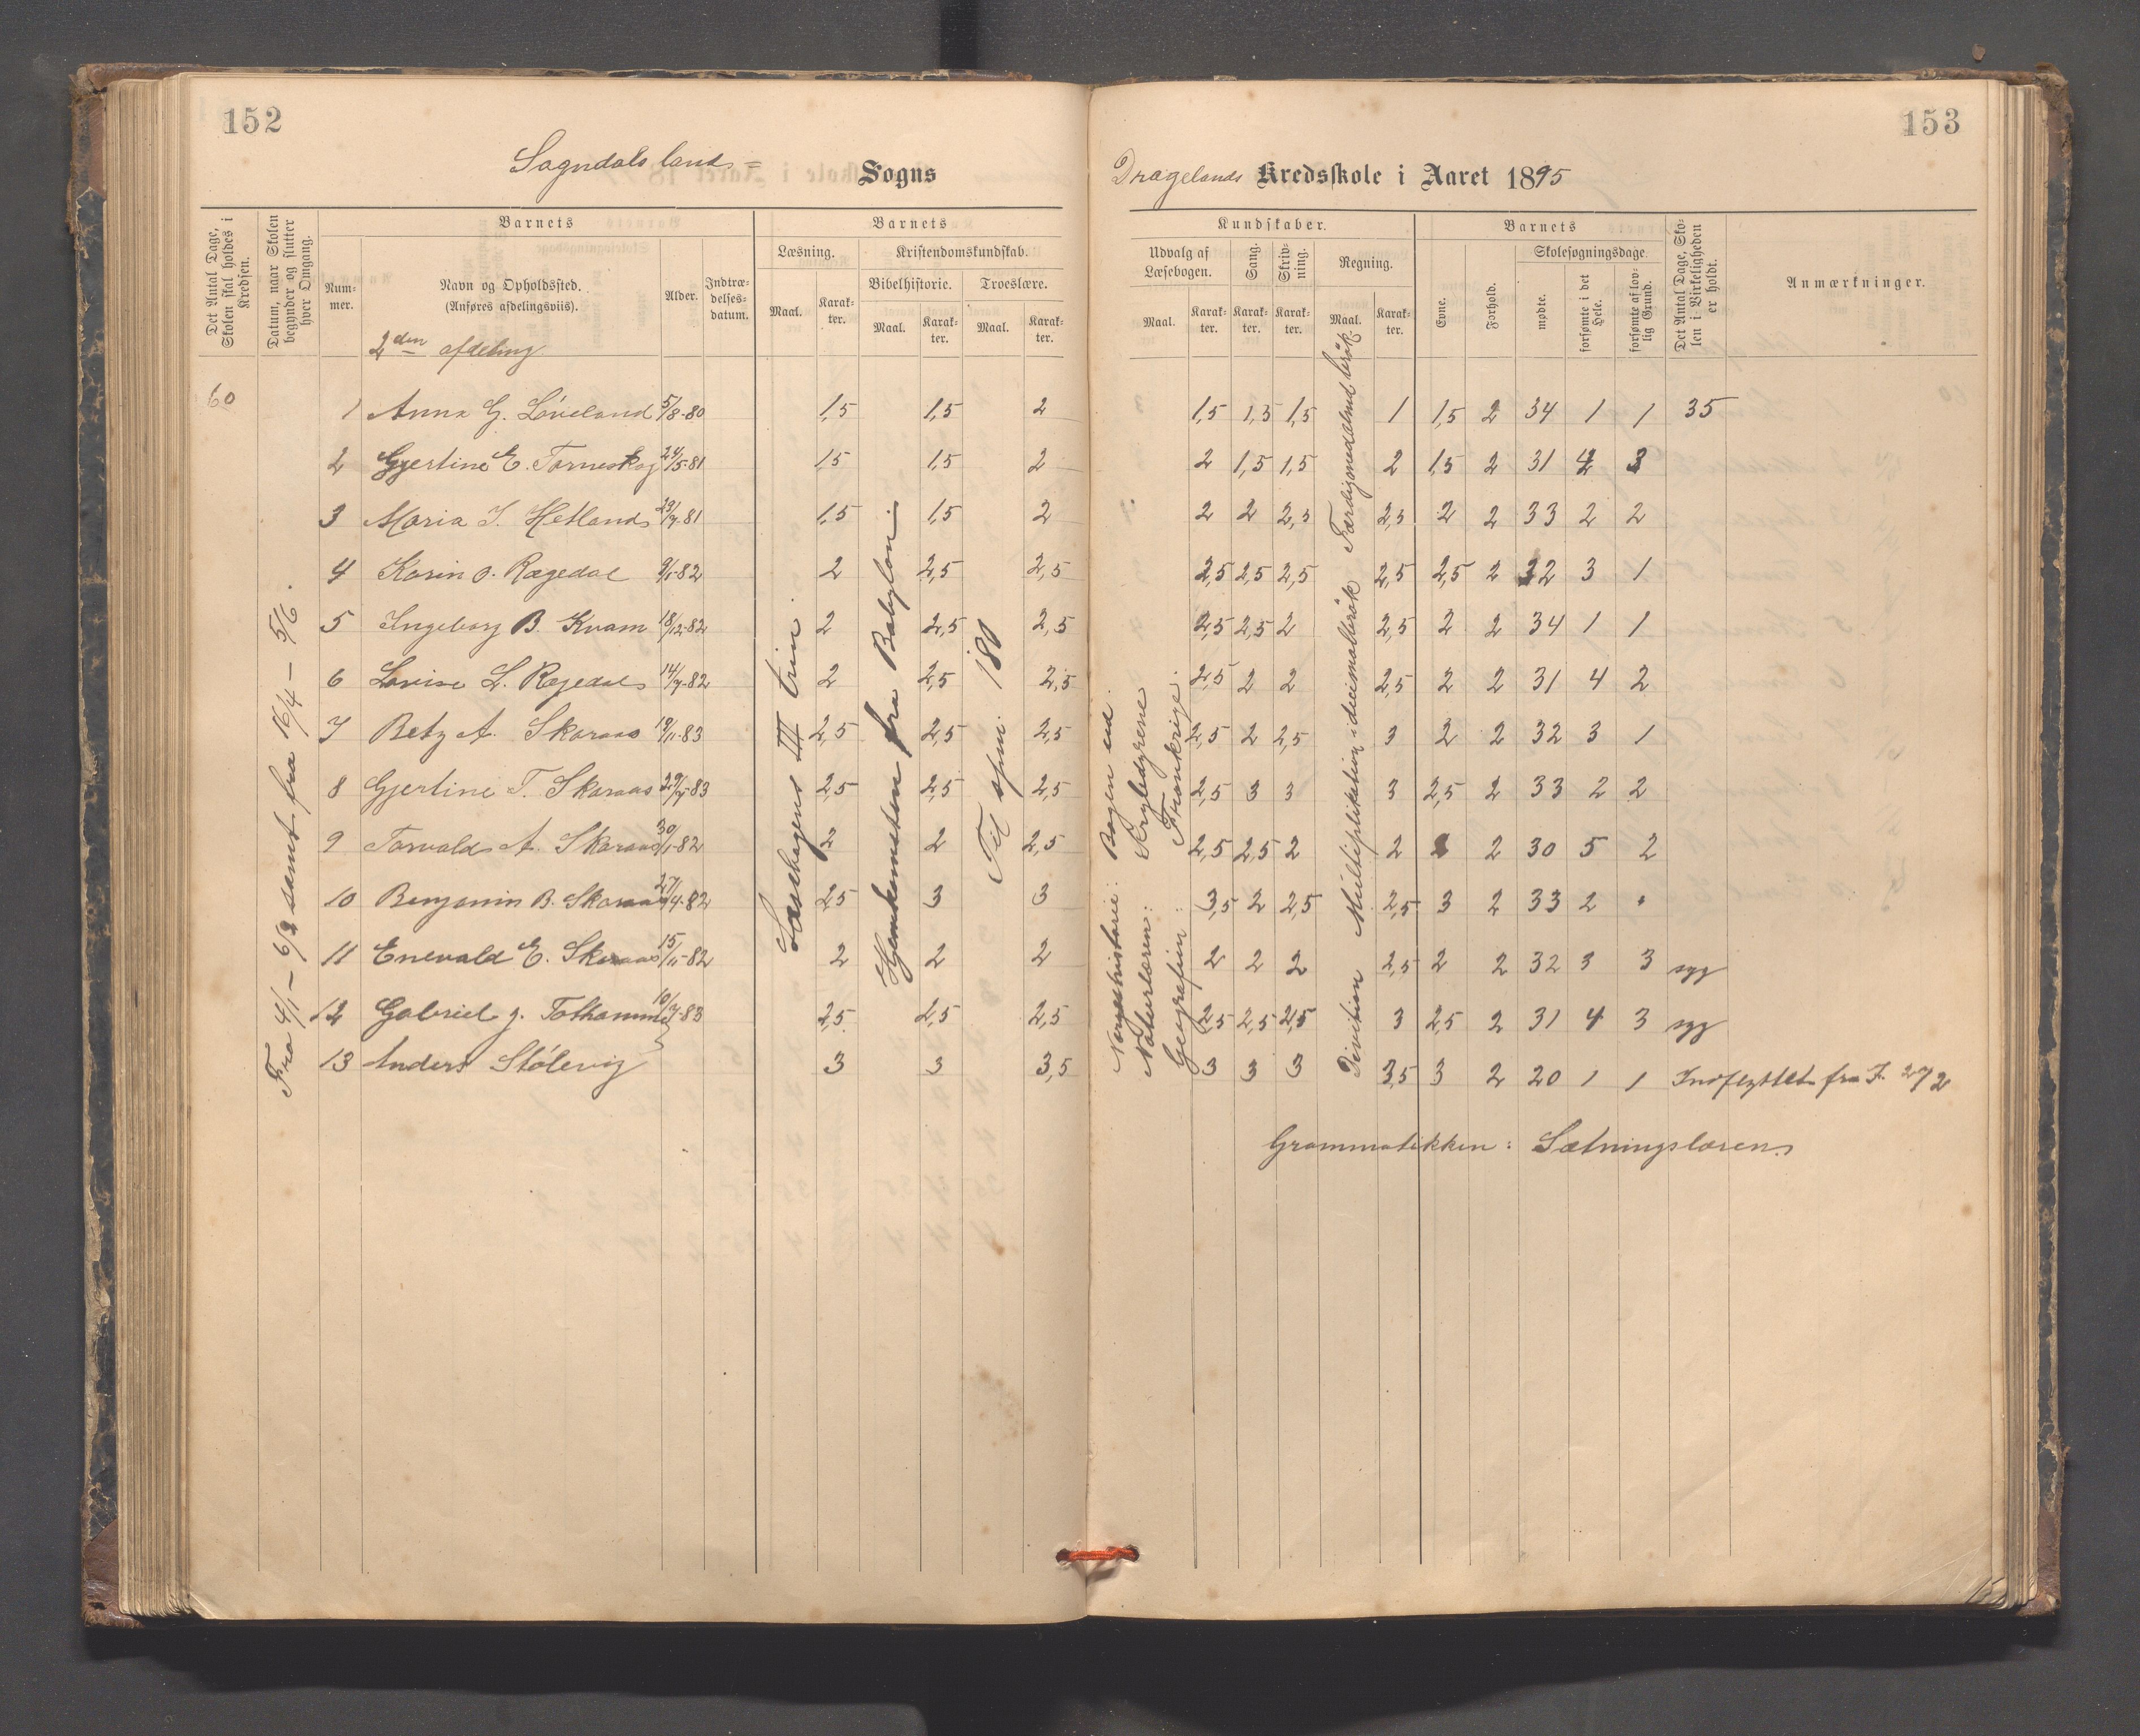 152
Sogndals lands =
Sogns
Det Antal Dage, Skolen skal holdes i Kredsen.
Datum, naar Skolen begynder og slutter hver Omgang.
Barnets
Nummer.
Navn og Opholdssted.
(Anføres afdelingsviis).
Alder.
Indtrædelsesdatum.
Barnets
Læsning.
Kristendomskundskab.
Bibelhistorie.
Troeslære.
Maal.
Karakter.
Maal.
Karakter.
Maal.
Karakter.
2den afdeling
60
Fra 4/1 – 6/2 samt fra 16/4 – 5/6.
Læsebogens III trin.
Hjemkomsten fra Babylon.
Til spm. 180
1 Anna G. Løveland 5/8-80 1,5 1,5 2
2 Gjertine E. Torneskog 24/5-81 1,5 1,5 2
3 Maria T. Hetland 29/7-81 1,5 1,5 2
4 Karin O. Rægedal 9/1-82 2 2,5 2,5
5 Ingeborg B. Kvam 18/12-82 2 2,5 2,5
6 Lovise L. Rægedal 14/7-82 2 2,5 2,5
7 Betzy A. Skaraas 19/11-83 2,5 2,5 2,5
8 Gjertine T. Skaraas 29/7-83 2,5 2,5 2,5
9 Torvald A. Skaraas 30/1-82 2 2 2,5
10 Benjamin B. Skaraas 27/4-82 2,5 3 3
11 Enevald E. Skaraas 15/11-82 2 2 2
12 Gabriel J. 10/7-83 2,5 2,5 2,5
13 Anders Stølevig 3 3 3,5
153
Drageland Kredsskole i Aaret 1895
Kundskaber.
Udvalg af Læsebogen.
Sang.
Skrivning.
Regning.
Maal.
Karakter.
Karakter.
Karakter.
Maal.
Karakter.
Barnets
Evne.
Forhold.
Skolesøgningsdage.
mødte.
forsømte i det Hele.
forsømte af lovlig Grund.
Det Antal Dage, Skolen i Virkeligheden er holdt.
Anmærkninger.
Norgeshistorie: Bogen ud.
Naturlæren: Krybdyrene
Geografien: Frankrige.
Division Multiplikation i decimalbrøk Færdig med alm brøk
1,5 1,5 1,5 1 1,5 2 34 1 1 35
2 1,5 1,5 2 1,5 2 31 4 3
2 2 2,5 2,5 2 2 33 2 2
2,5 2,5 2,5 2,5 2,5 2 32 3 1
2,5 2,5 2 2,5 2 2 34 1 1
2,5 2 2 2,5 2 2 31 4 2
2,5 2 2,5 3 2 2 32 3 1
2,5 3 3 3 2,5 2 33 2 2
2,5 2,5 2 2 2 30 5 2
3,5 2 2,5 2,5 3 2 33 2
2 2 2 2,5 2 2 32 3 3 syg
2,5 2,5 2,5 3 2,5 2 31 4 3 syg
3 3 3 3,5 3 2 20 1 1 Indflyttet fra F. 27/2
Grammatikken: Sætningslæren